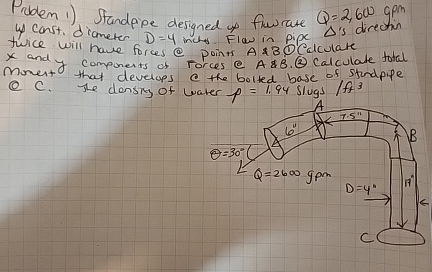 Problem 1) Standpipe designed w/ flowrate Q=2,600 gpm
w/ const. diameter D=4 inches. Flow in pipe Δ's direction
twice will have forces @ points A & B ① Calculate
x and y components of forces @ A & B. ② Calculate total
moment that develops @ the bolted base of standpipe
@ C. The density of water ρ = 1.94 slugs/ft³
A
6"
7.5"
B
θ=30°
Q=2600 gpm
D=4"
C